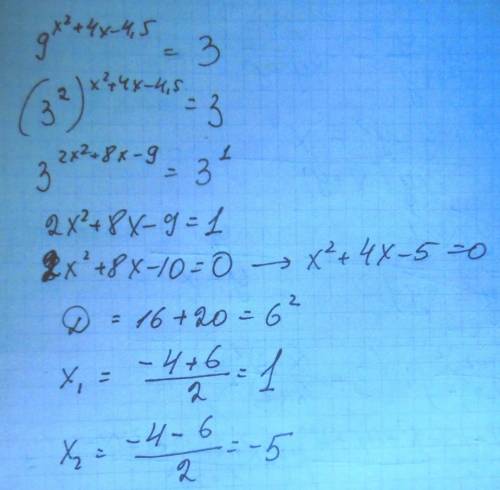 9^{x²+4x-4,5} = 3
(3²)^{x²+4x-4,5} = 3
3^{2x²+8x-9} = 3¹
2x²+8x-9=1
2x²+8x-10=0 → x²+4x-5=0
D = 16+20=6²
x₁ = \frac{-4+6}{2} = 1
x₂ = \frac{-4-6}{2} = -5